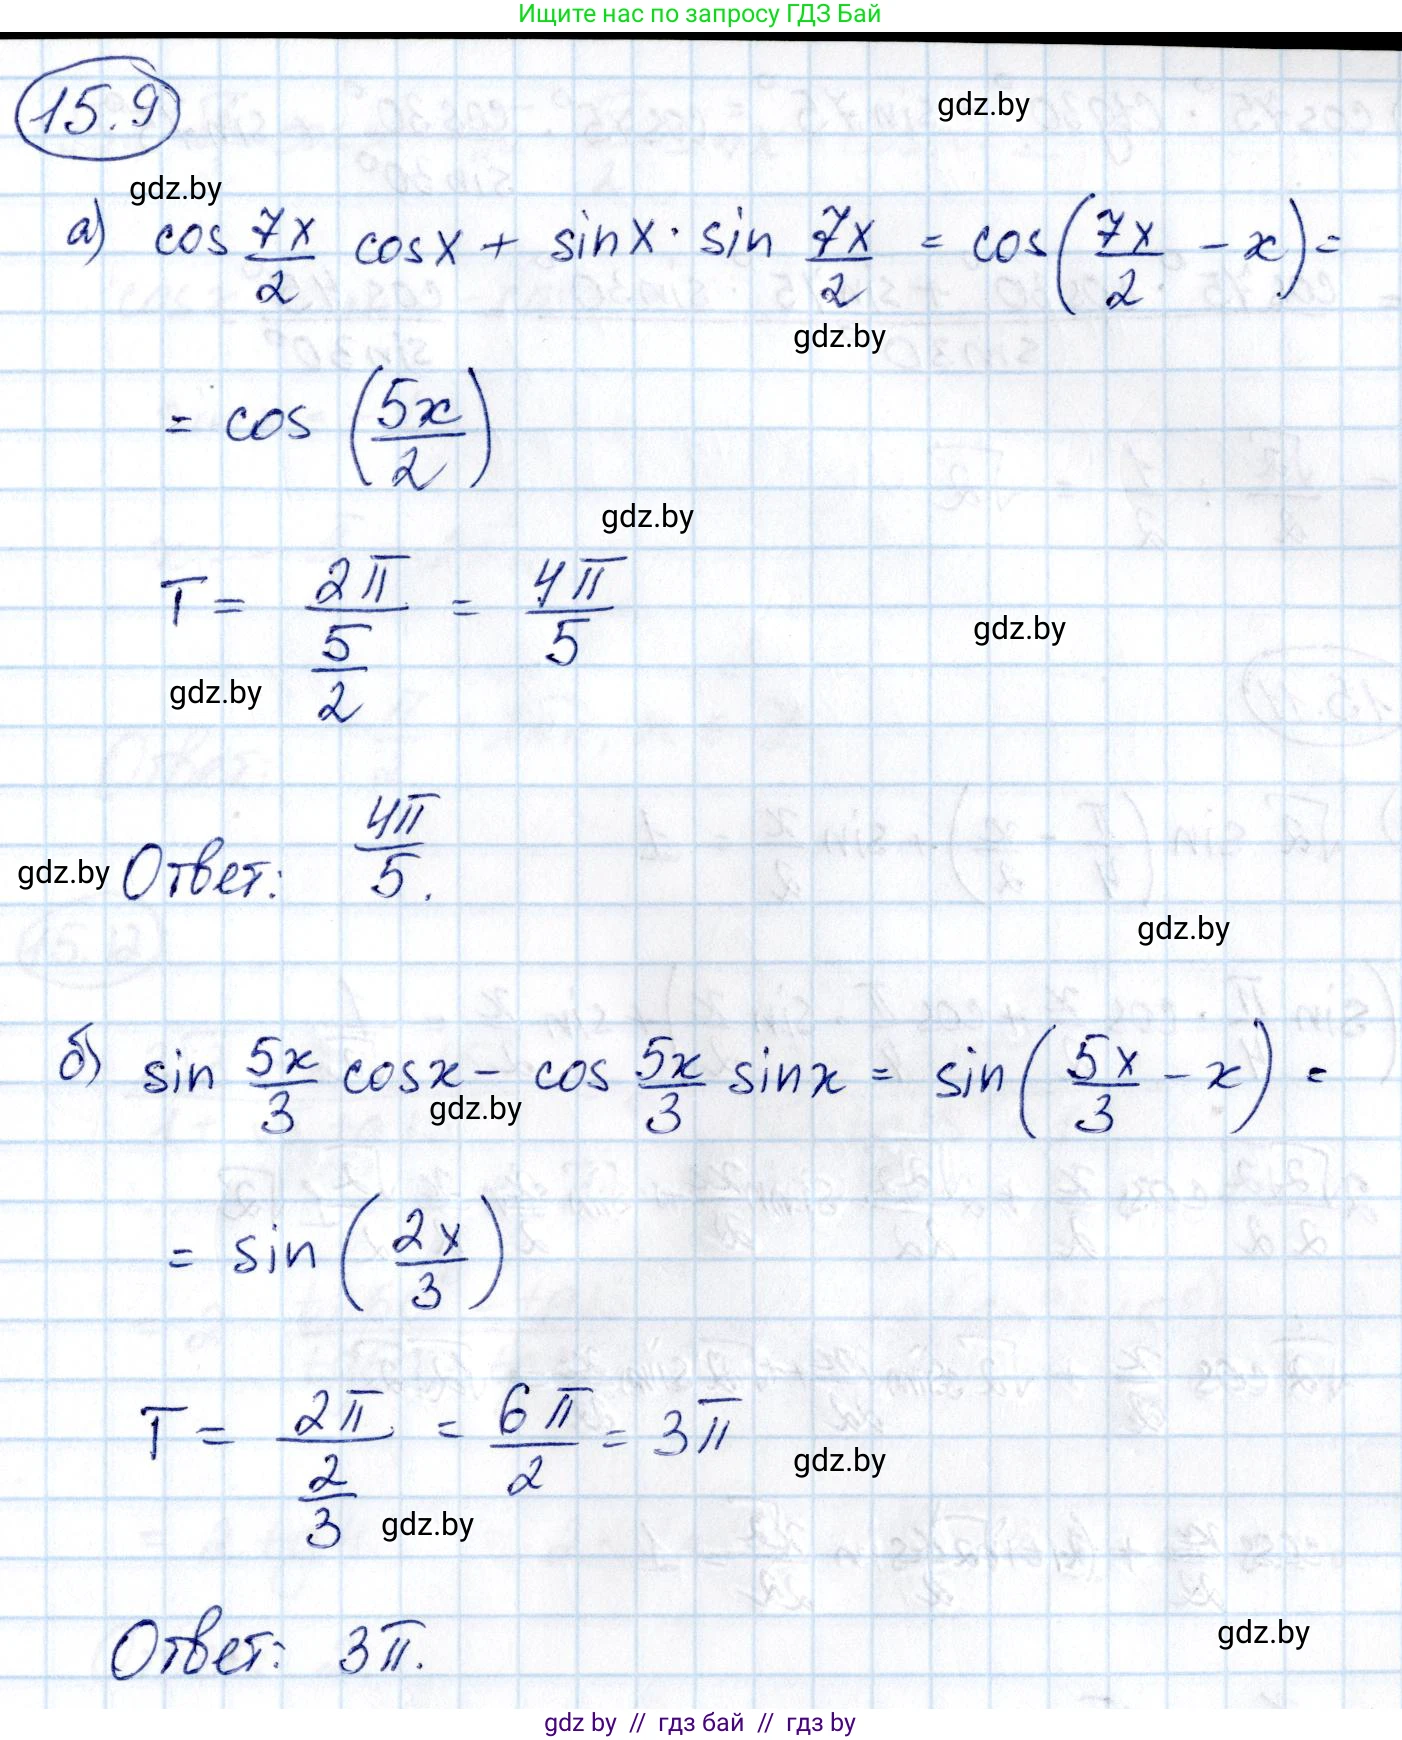 Ищите нас по запросу ГДЗ Бай
15.9
gdz.by
gdz.by
а) cos 7x/2 cosx + sinx · sin 7x/2 = cos(7x/2 - x) =
gdz.by
= cos (5x/2)
gdz.by
T = 2π/(5/2) = 4π/5
gdz.by
gdz.by
Ответ: 4π/5.
gdz.by
gdz.by
б) sin 5x/3 cosx - cos 5x/3 sinx = sin(5x/3 - x) =
gdz.by
= sin(2x/3)
T = 2π/(2/3) = 6π/2 = 3π
gdz.by
gdz.by
Ответ: 3π.
gdz.by
gdz by // гдз бай // гдз by